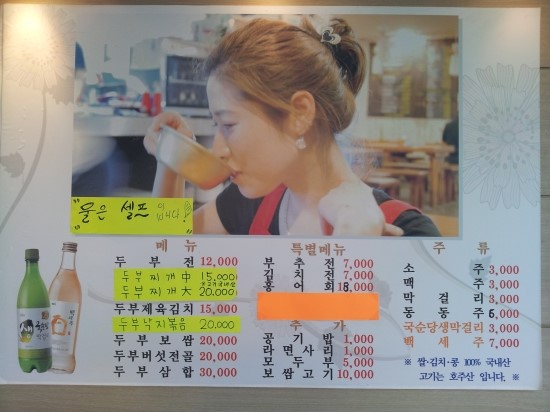 "물은 셀프 입니다!"
메 뉴
두 부 전 12,000
두부찌개 中 15,000
두부찌개 大 20,000
두부제육김치 15,000
두부낙지볶음 20,000
두 부 보 쌈 20,000
두부버섯전골 20,000
두 부 삼 합 30,000
특별메뉴
부 추 전 7,000
김 치 전 7,000
홍 어 회 18,000
추 가
공 기 밥 1,000
라 면 사 리 1,000
모 두 부 5,000
보 쌈 고 기 10,000
주 류
소 주 3,000
맥 주 3,000
막 걸 리 3,000
동 동 주 6,000
국순당생막걸리 3,000
백 세 주 7,000
※ 쌀·김치·콩 100% 국내산
고기는 호주산 입니다. ※